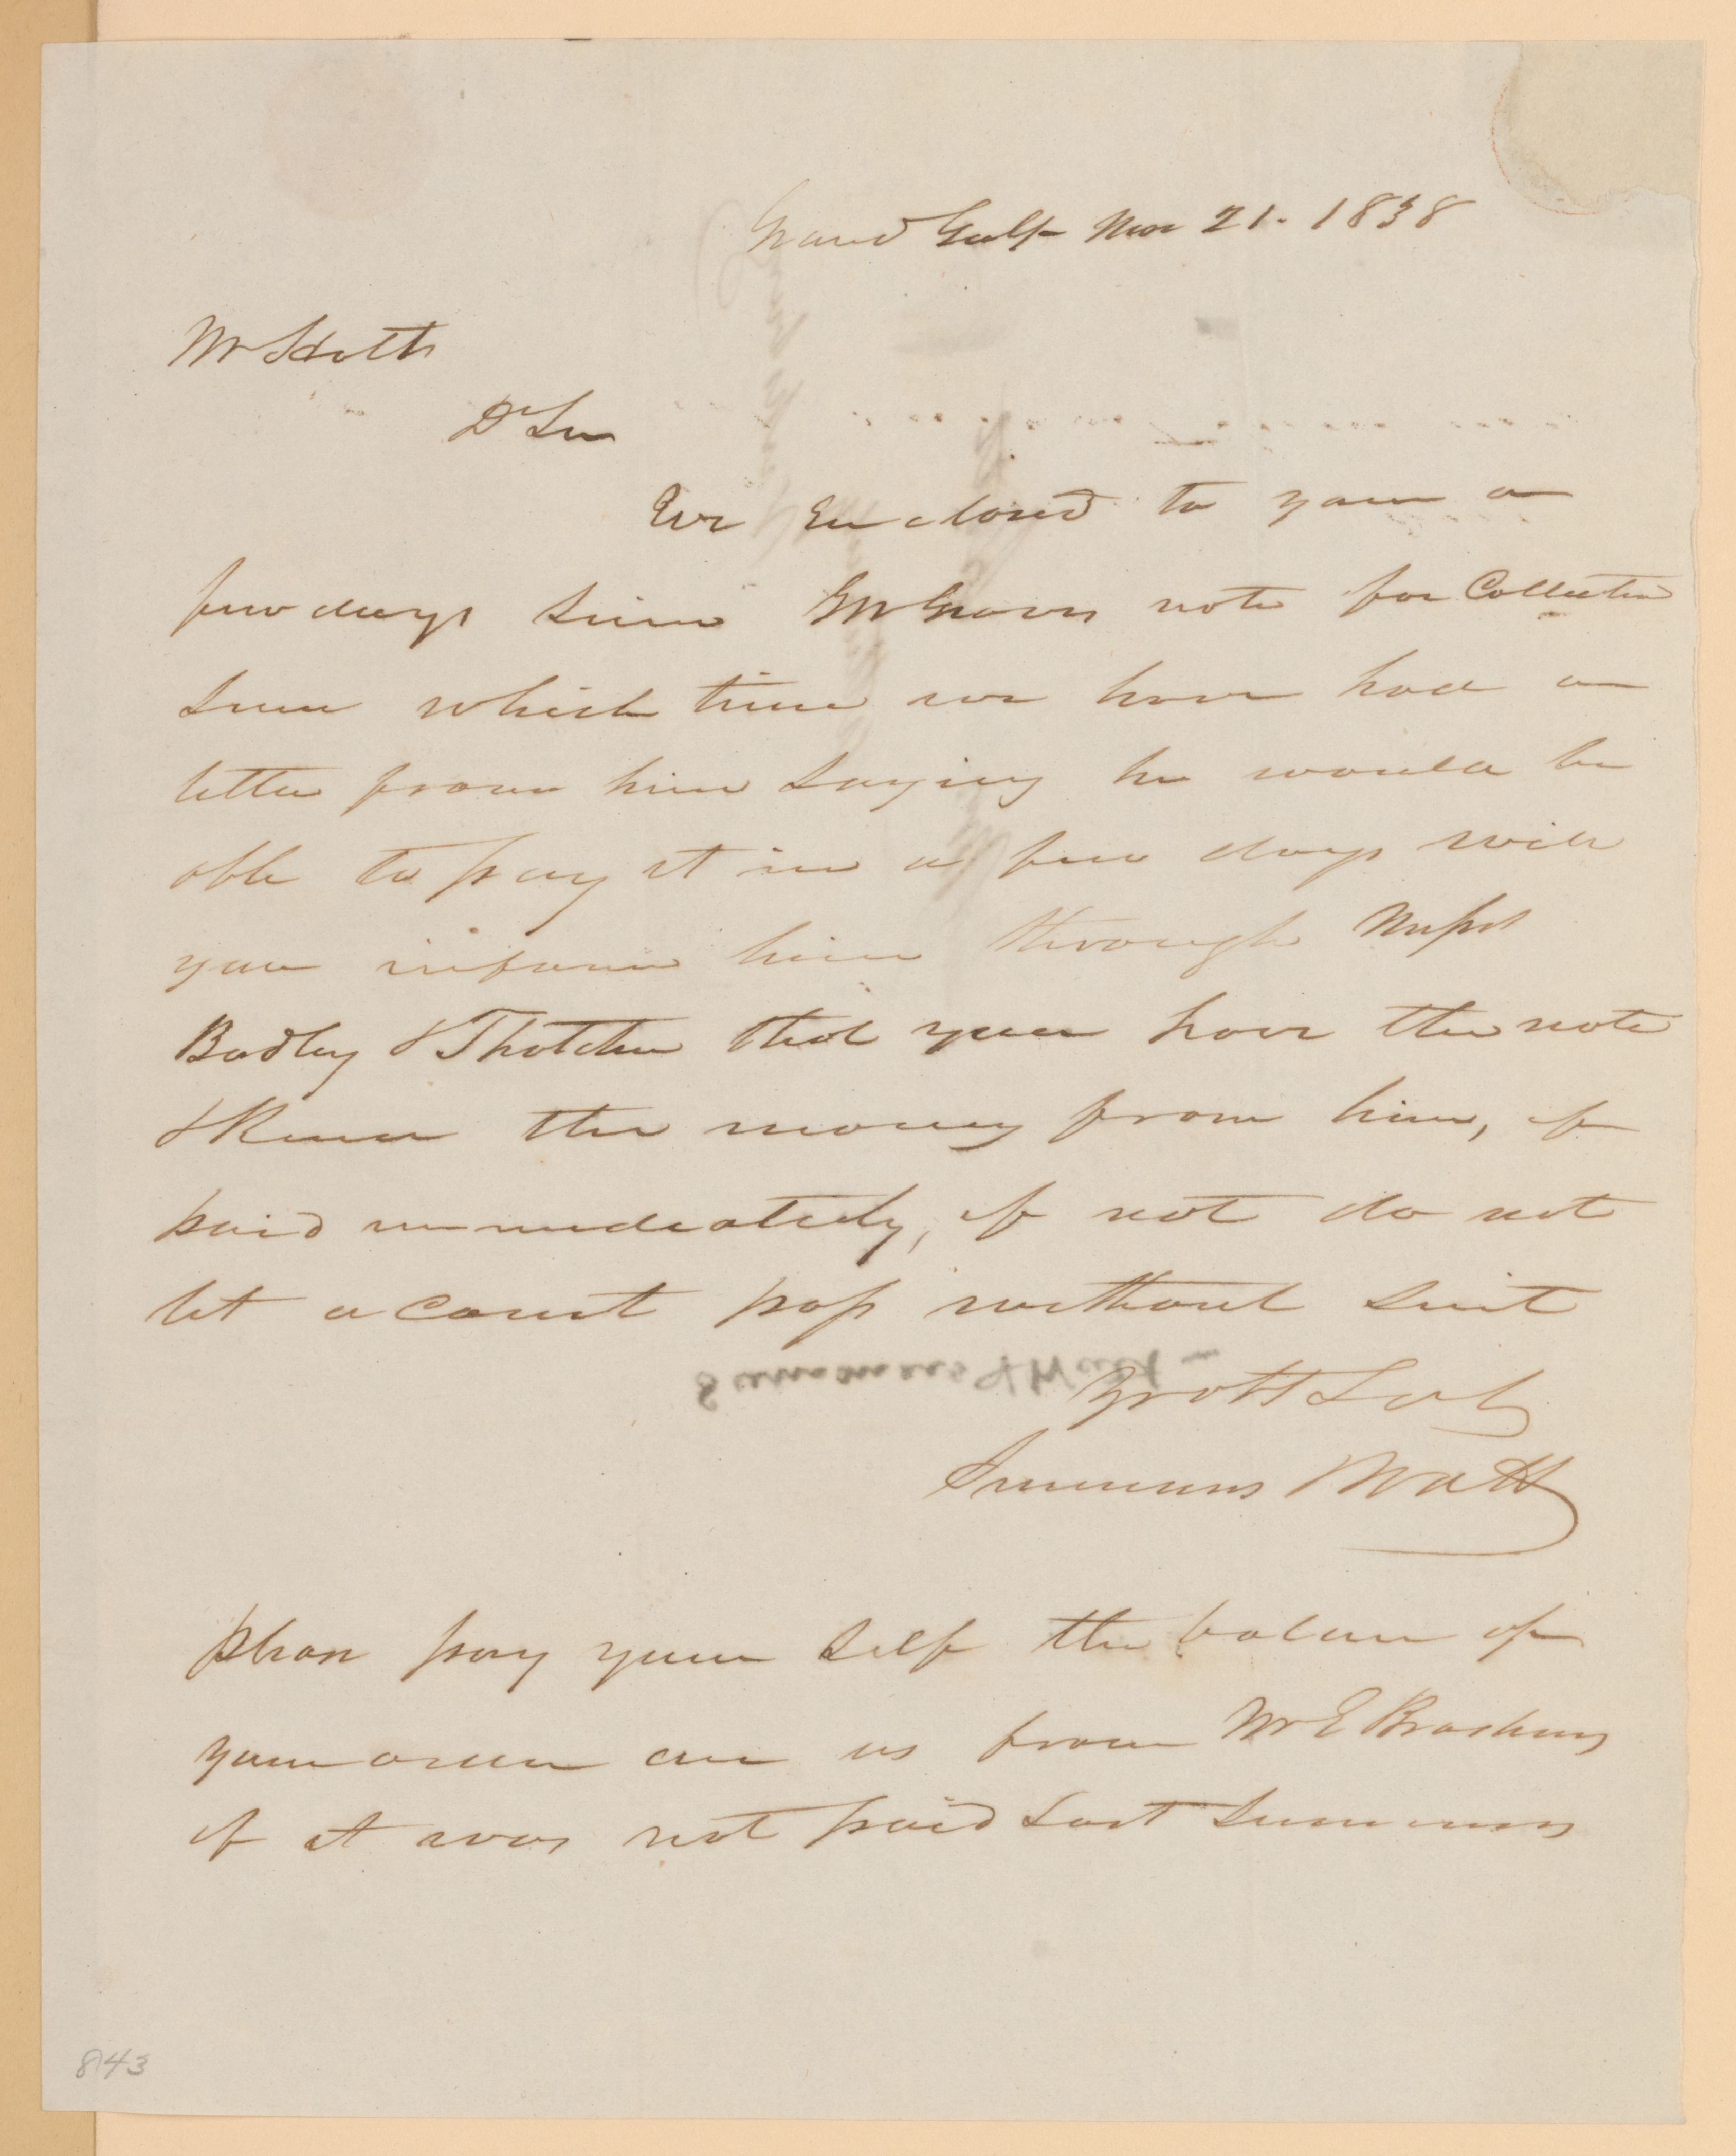 Grand Gulf Nov 21. 1838
Mr Holt
Dr Sir
We Enclosed to you a
few days since note for Collection
since which time we have had a
letter from him saying he would be
able to pay it in a few days will
you inform him through Messrs
Bodley & Thatcher that you have the note
& Receive the money from him, if
paid immediately, if not do not
let a Court pass without suit
Yrs
Simmons Watt
Simmons & Watt
please pay your self the balance of
your on us from Mr E Brashears
if it was not paid last summer
843